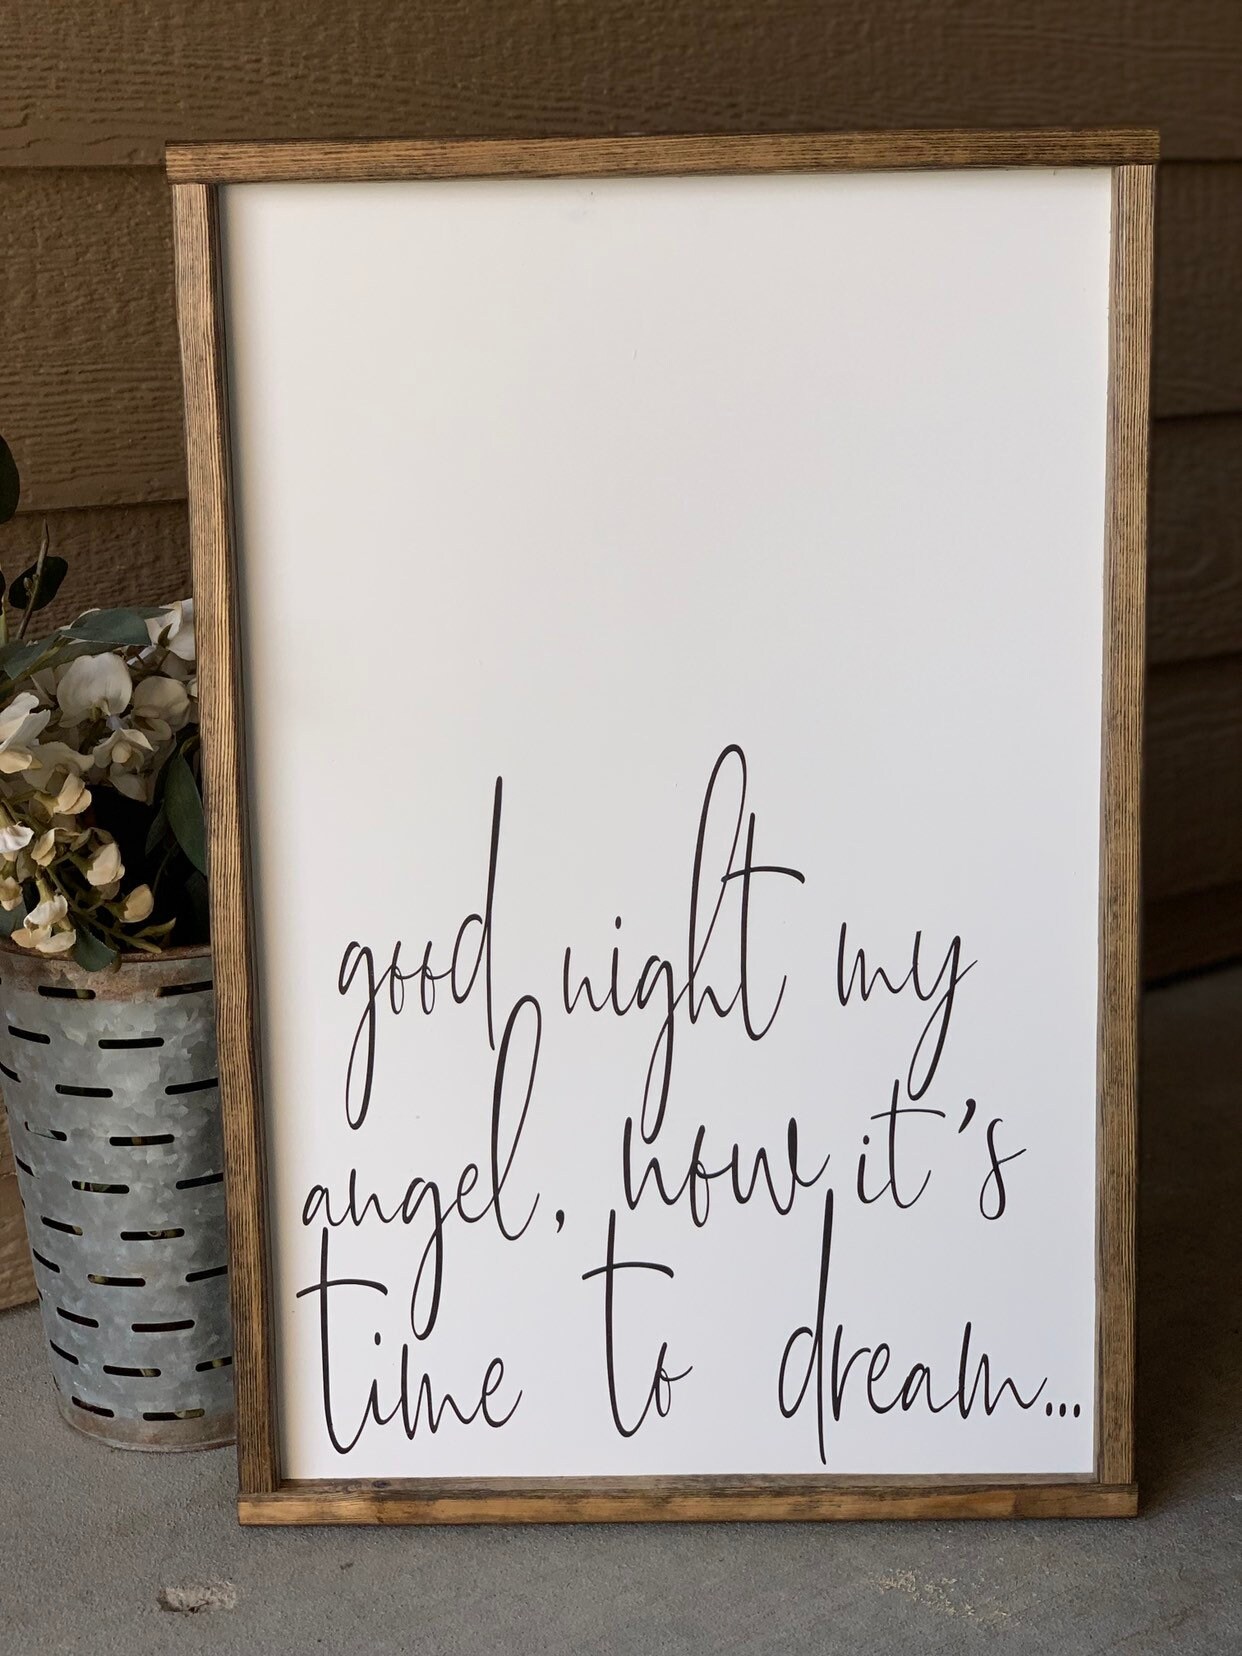 good night my
angel, now it's
time to dream...